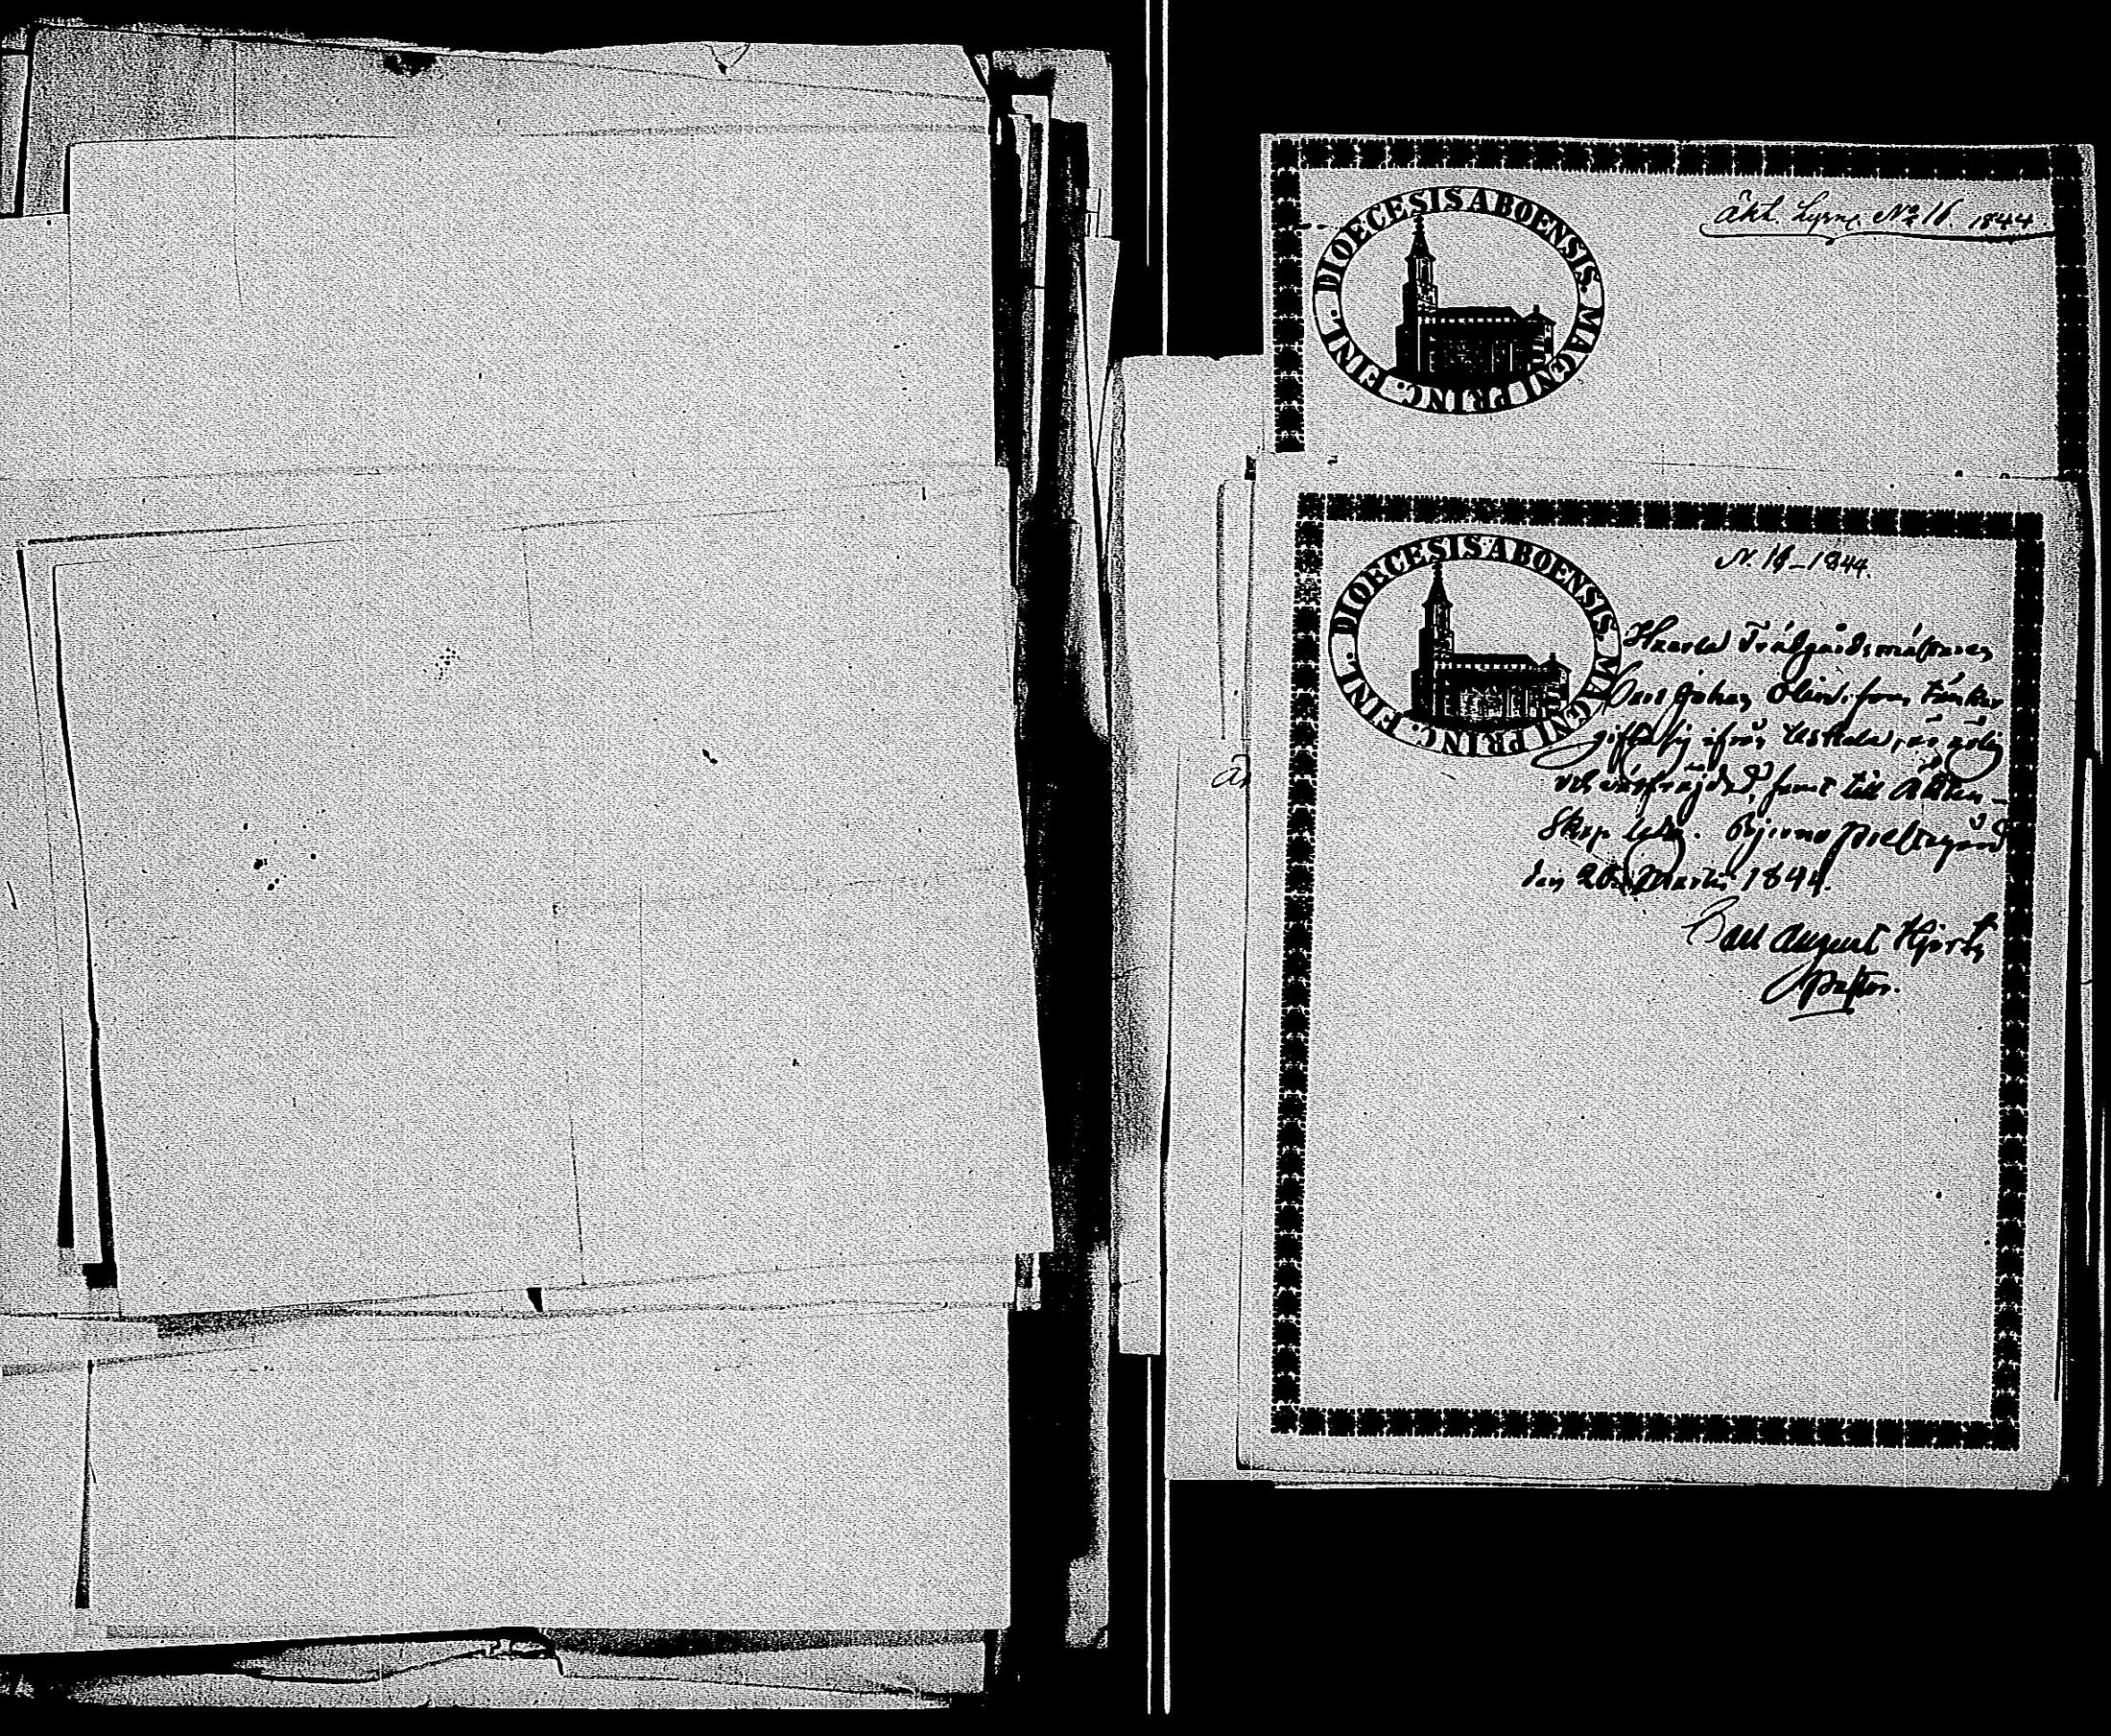 DIOECESIS ABOENSIS. MAGNI PRINC. FINL.
Äkt. Lysn. No 16. 1844
DIOECESIS ABOENSIS. MAGNI PRINC. FINL.
N. 16 – 1844.
Trädgårdsmästaren
Carl Johan som tänker
gifta sig ifrån Uskela, är ärlig
och välfräjdad, samt till Äkten-
skap ledig. Bjerno Prestegård
den 20 Martii 1844.
Carl August Hjorth
Pastor.